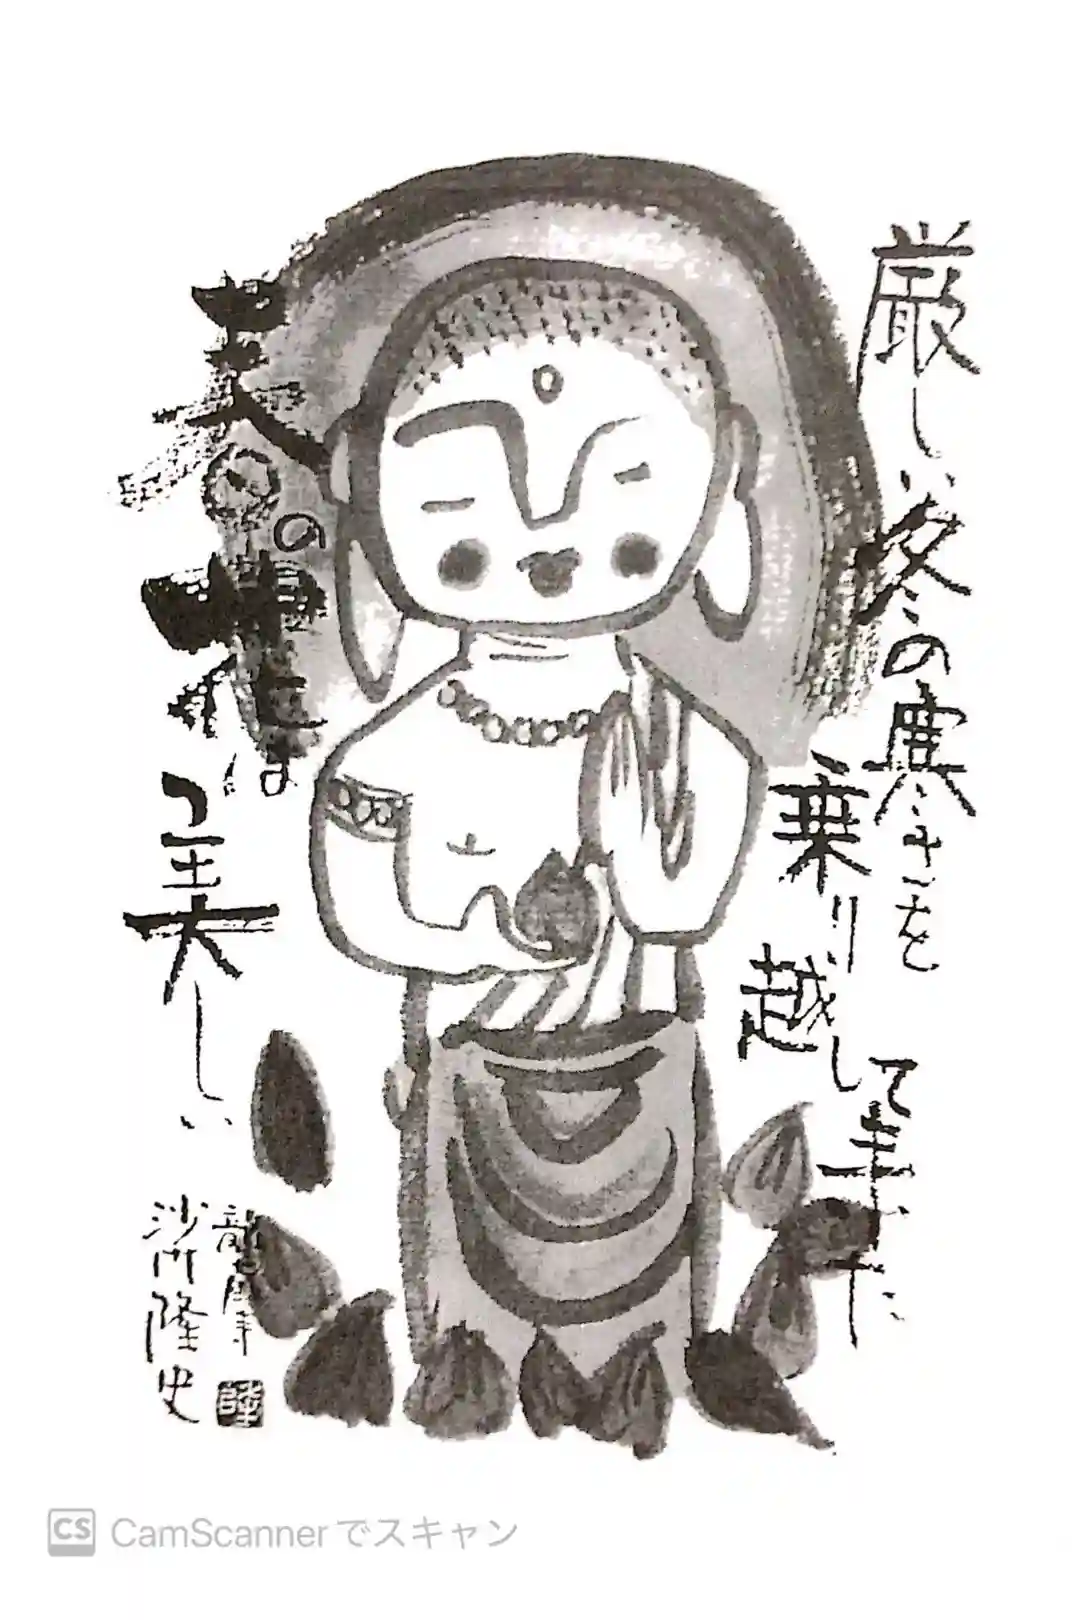 厳しい冬の寒さを
乗り越して来た
春の花は
美しい
沙門隆史
隆
CS CamScannerでスキャン